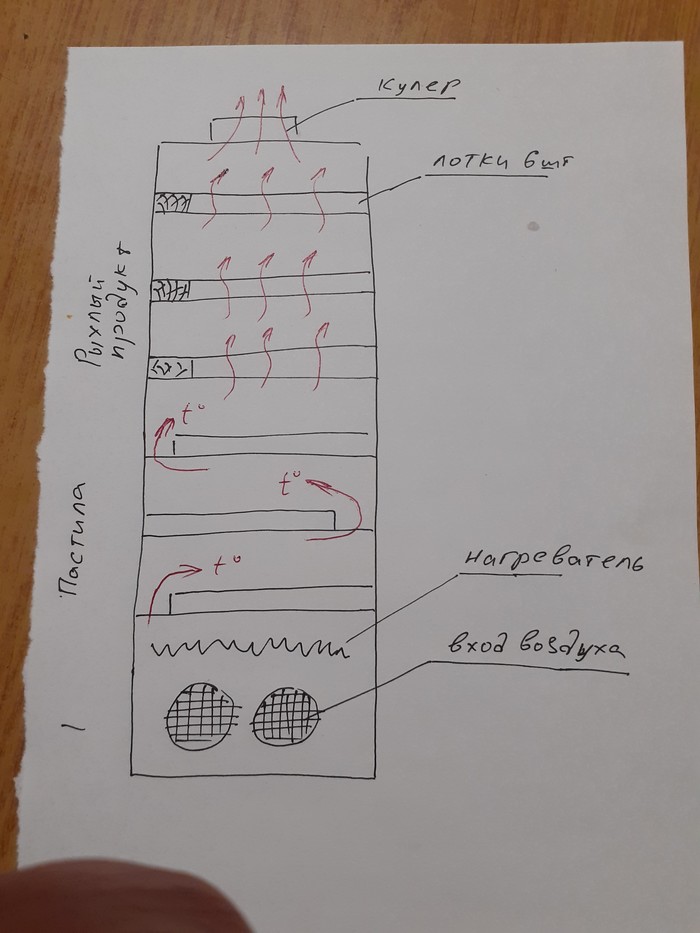 кулер
лотки 6шт
Рыхлый
продукт
t°
t°
Пастила
t°
нагреватель
вход воздуха